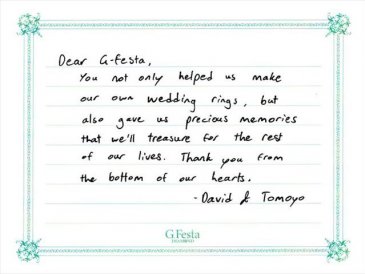 Dear G-festa,
You not only helped us make
our own wedding rings, but
also gave us precious memories
that we'll treasure for the rest
of our lives. Thank you from
the bottom of our hearts.
- David & Tomoyo
G.Festa